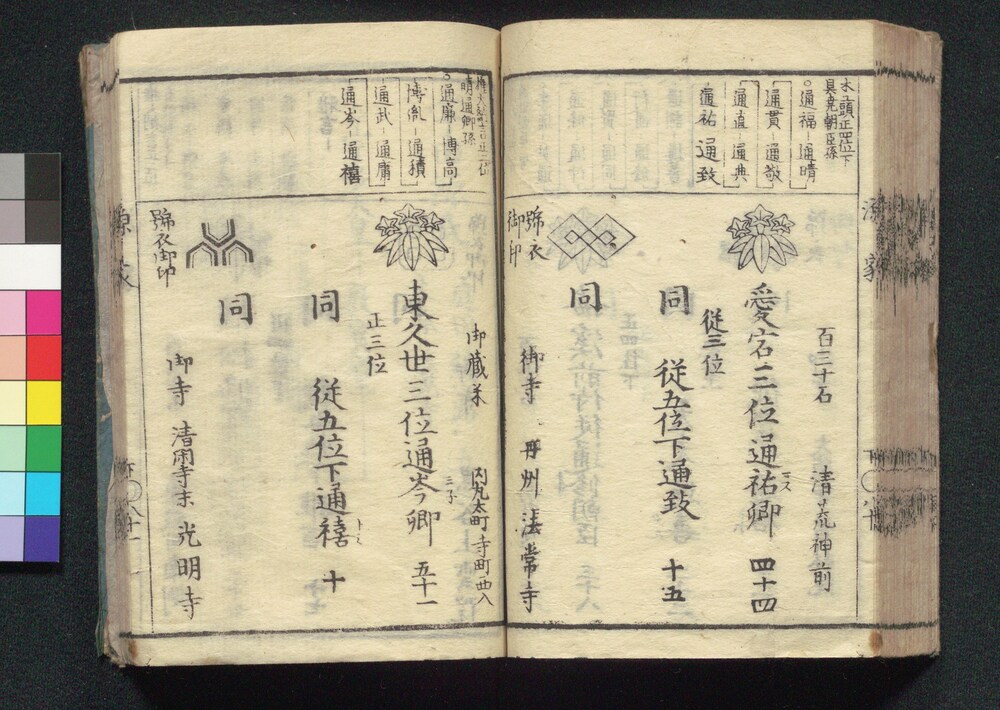 木工頭正四位下
具堯朝臣孫
○通福―通晴
通貫―通敬
通直―通典
通祐 通致
源家
百三十石
清荒神前
愛宕三位通祐卿 四十四
従三位
同 従五位下通致 十五
号衣
御印
同
御寺 丹州法常寺
晴通卿孫
○通廉―博高
博胤―通積
通武―通庸
通岑―通禧
御蔵米
内丸太町寺町西入
東久世三位通岑卿 五十一
正三位
同 従五位下通禧 十
トミ
号衣御印
同
御寺 清浄寺末 光明寺
源家